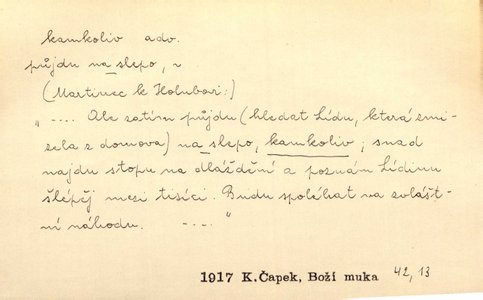 kamkoliv adv.
půjdu na slepo, ~
(Martinec k Holubovi:)
".... Ale zatím půjdu (hledat Lídu, která zmi-
zela z domova) na slepo, kamkoliv; snad
najdu stopu na dláždění a poznám Lídinu
šlépěj mezi tisíci. Budu spoléhat na zvlášt-
ní náhodu. -..."
1917 K.Čapek, Boží muka 42,13